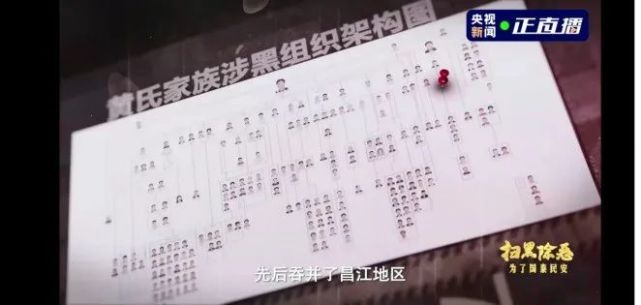 央视
新闻
正直播
黄氏家族涉黑组织架构图
扫黑除恶
为了国泰民安
先后吞并了昌江地区